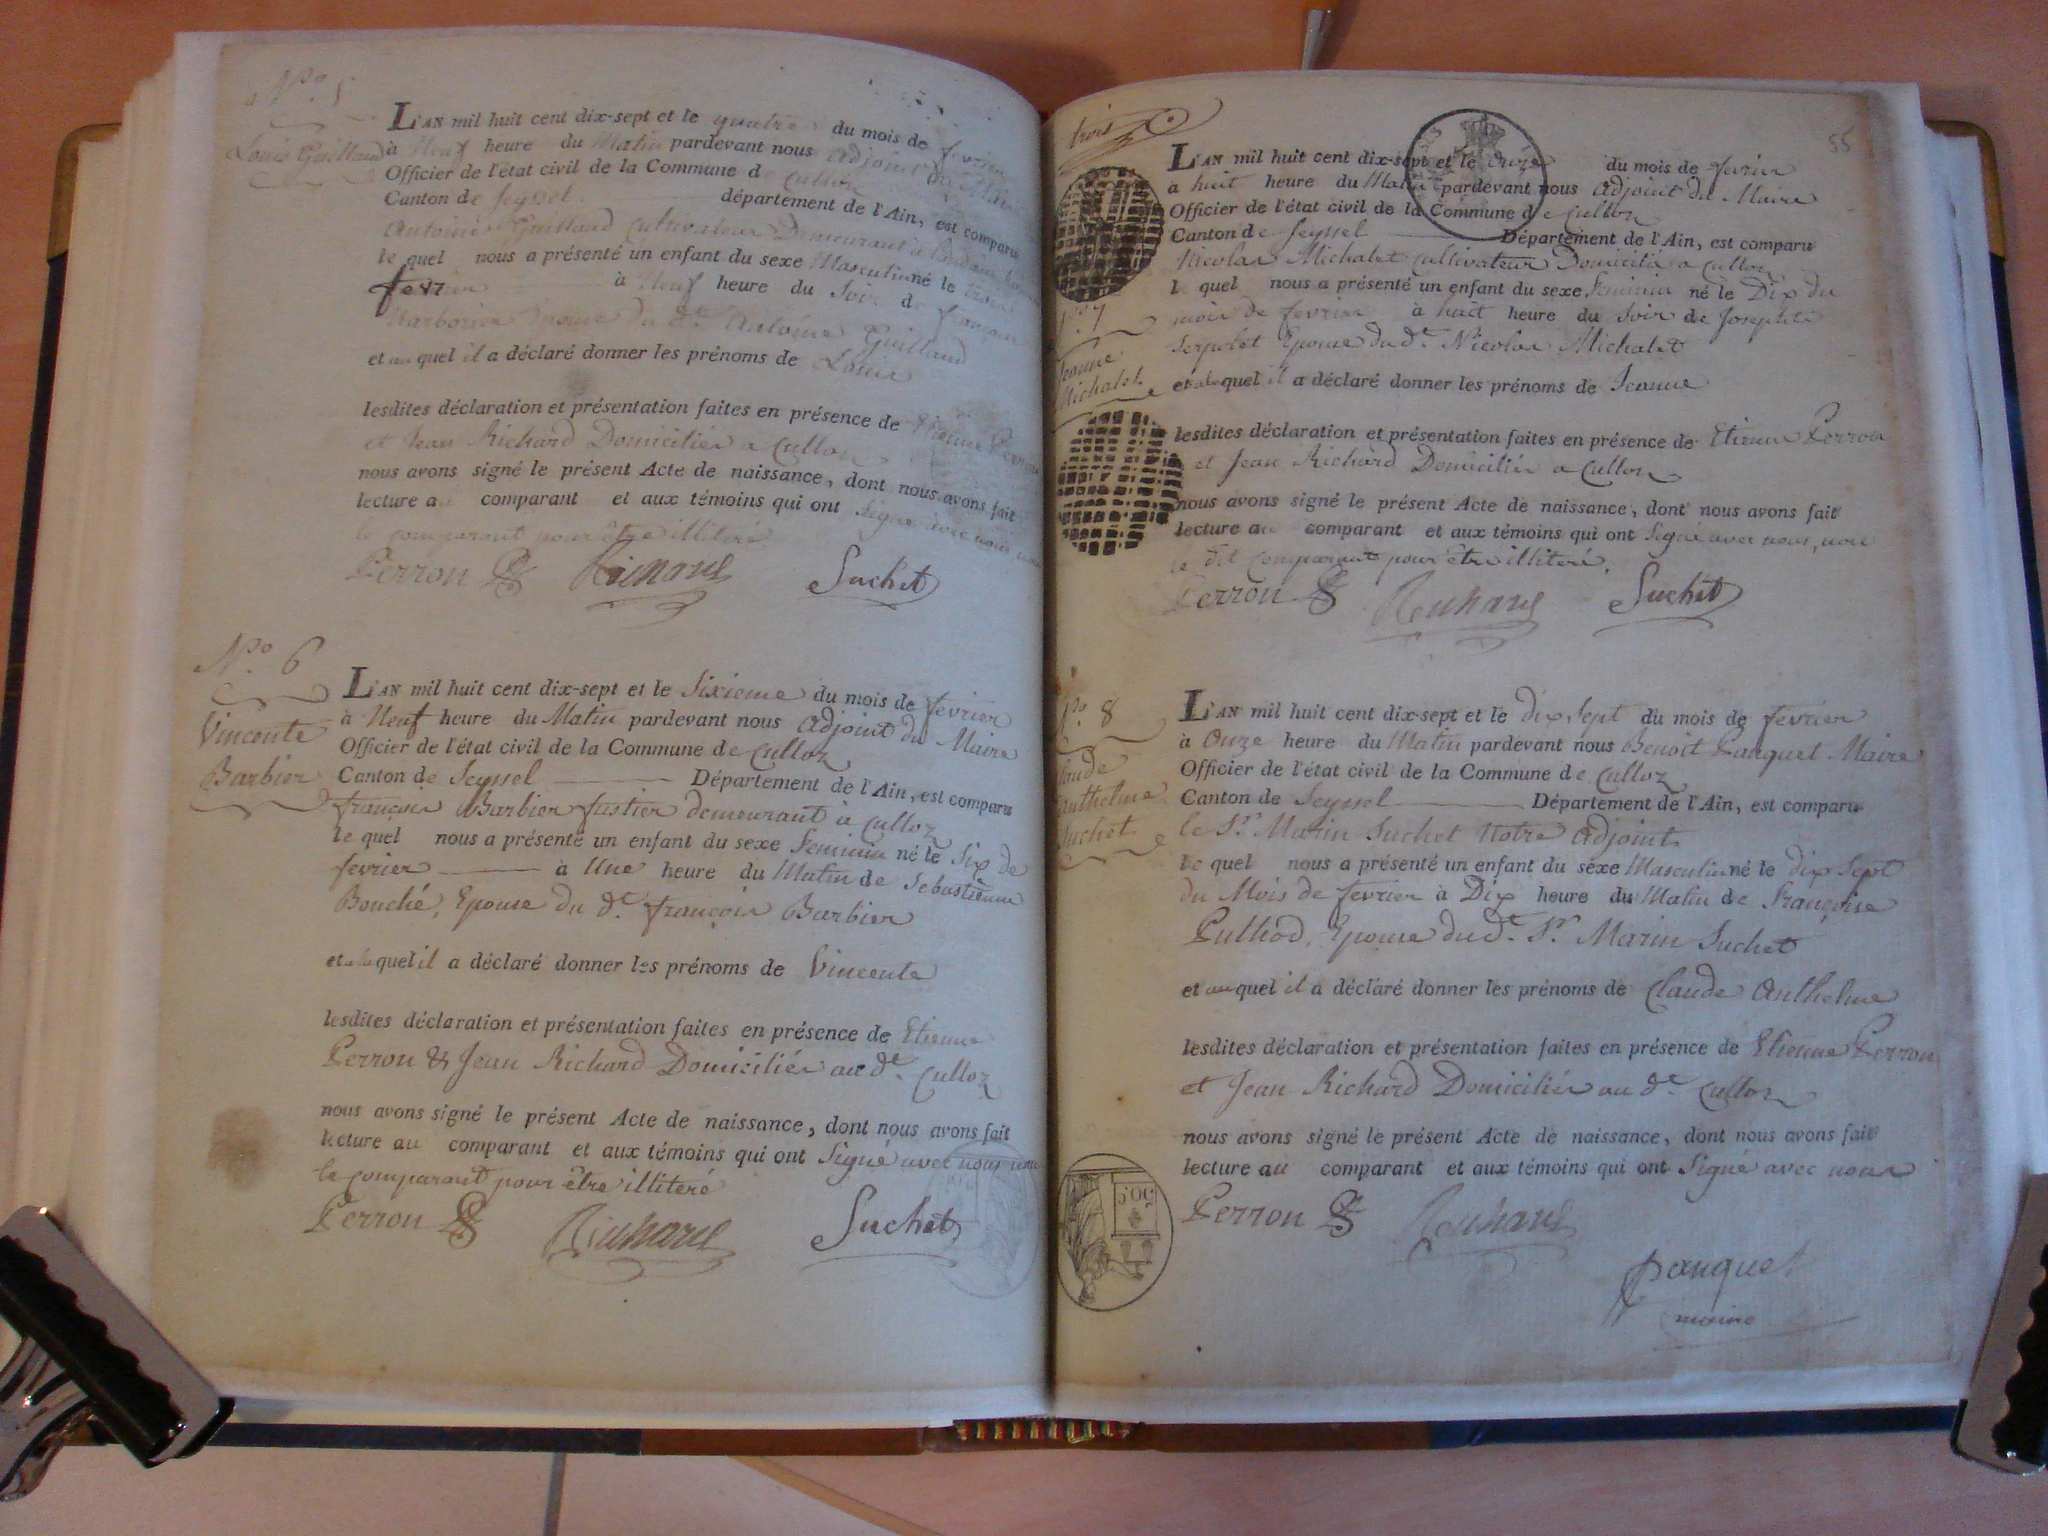 Nº. 5
Louis Guilland
L'AN mil huit cent dix-sept et le quatre du mois de fevrier
à Neuf heure du Matin pardevant nous adjoint du Maire
Officier de l'état civil de la Commune de Culloz
Canton de Seyssel département de l'Ain, est comparu
Antoine Guilland Cultivateur Demeurant à
le quel nous a présenté un enfant du sexe Masculin né le trois
fevrier à Neuf heure du Soir de françoise
Epouse du dt. Antoine Guilland
et au quel il a déclaré donner les prénoms de Louis
lesdites déclaration et présentation faites en présence de Etienne Perron
et Jean Richard Domiciliés a Culloz
nous avons signé le présent Acte de naissance, dont nous avons fait
lecture au comparant et aux témoins qui ont Signé avec nous non
le comparant pour être illiteré
Perron Richard Suchet
Nº. 6
Vincente
Barbier
L'AN mil huit cent dix-sept et le Sixieme du mois de fevrier
à Neuf heure du Matin pardevant nous adjoint du Maire
Officier de l'état civil de la Commune de Culloz
Canton de Seyssel Département de l'Ain, est comparu
françois Barbier fustier demeurant à Culloz
le quel nous a présenté un enfant du sexe Feminin né le Six de
fevrier à Une heure du Matin de Sebastienne
Bouché, Epouse du dt. françois Barbier
et a la quel il a déclaré donner les prénoms de Vincente
lesdites déclaration et présentation faites en présence de Etienne
Perron & Jean Richard Domiciliés au dt. Culloz
nous avons signé le présent Acte de naissance, dont nous avons fait
lecture au comparant et aux témoins qui ont Signé avec nous non
le comparant pour être illiteré
Perron Richard Suchet
trois
55
Nº. 7
Jeanne
Michalet
L'AN mil huit cent dix-sept et le onze du mois de fevrier
à huit heure du Matin pardevant nous adjoint du Maire
Officier de l'état civil de la Commune de Culloz
Canton de Seyssel Département de l'Ain, est comparu
Nicolas Michalet Cultivateur Domicilié a Culloz
le quel nous a présenté un enfant du sexe Feminin né le Dix du
mois de fevrier à huit heure du Soir de Josephte
Serpolet Epouse du dt. Nicolas Michalet
et a la quel il a déclaré donner les prénoms de Jeanne
lesdites déclaration et présentation faites en présence de Etienne Perron
et Jean Richard Domiciliés a Culloz
nous avons signé le présent Acte de naissance, dont nous avons fait
lecture au comparant et aux témoins qui ont Signé avec nous, non
le dit comparant pour être illiteré.
Perron Richard Suchet
Nº. 8
Claude
Anthelme
Suchet
L'AN mil huit cent dix-sept et le dix Sept du mois de fevrier
à Onze heure du Matin pardevant nous Benoit Pauquet Maire
Officier de l'état civil de la Commune de Culloz
Canton de Seyssel Département de l'Ain, est comparu
le Sr. Marin Suchet Notre adjoint
le quel nous a présenté un enfant du sexe Masculin né le dix Sept
du Mois de fevrier à Dix heure du Matin de Françoise
Pulhod, Epouse du dt. Sr. Marin Suchet
et au quel il a déclaré donner les prénoms de Claude Anthelme
lesdites déclaration et présentation faites en présence de Etienne Perron
et Jean Richard Domiciliés au dt. Culloz
nous avons signé le présent Acte de naissance, dont nous avons fait
lecture au comparant et aux témoins qui ont Signé avec nous
Perron Richard
Pauquet
maire
50C.